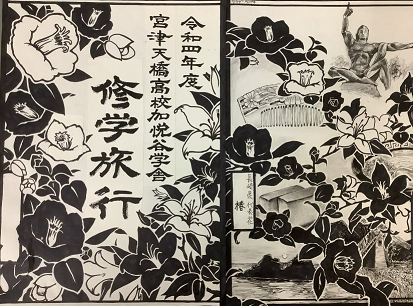 令和四年度
宮津天橋高校加悦谷学舎
修学旅行
椿